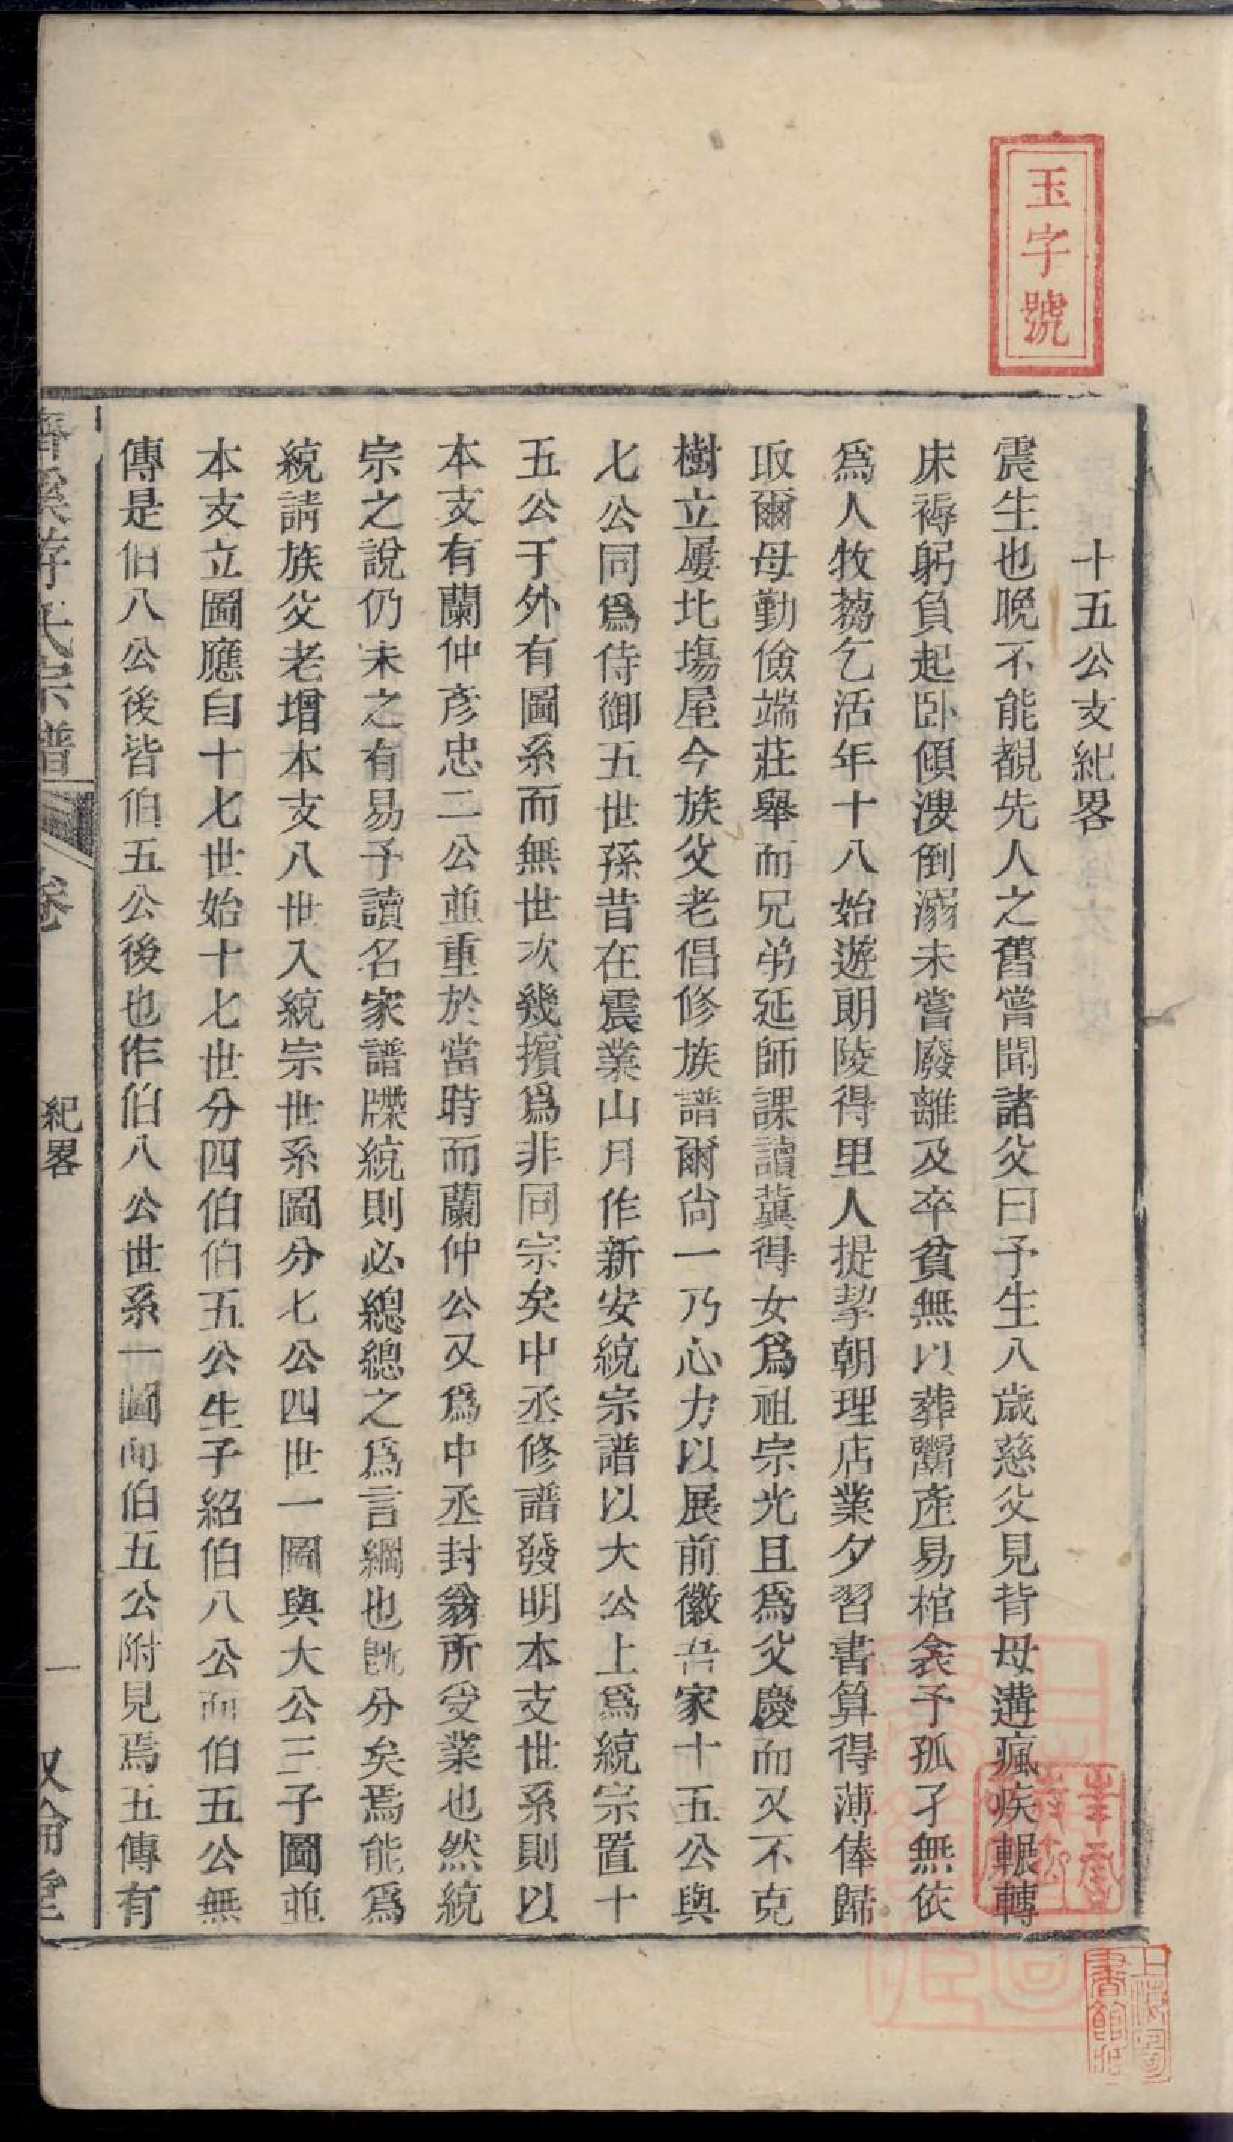 玉字號
十五公支紀畧
震生也晚不能覩先人之舊嘗聞諸父曰予生八歲慈父見背母遘瘋疾輾轉
床褥躬負起卧傾溲倒溺未嘗廢離及卒貧無以葬鬻產易棺衾予孤孑無依
爲人牧蒭乞活年十八始遊朗陵得里人提挈朝理店業夕習書算得薄俸歸
取爾母勤儉端莊舉而兄弟延師課讀冀得女爲祖宗光且爲父慶而又不克
樹立屢北塲屋今族父老倡修族譜爾尚一乃心力以展前徽吾家十五公與
七公同爲侍御五世孫昔在震業山月作新安統宗譜以大公上爲統宗置十
五公于外有圖系而無世次幾擯爲非同宗矣中丞修譜發明本支世系則以
本支有蘭仲彥忠二公並重於當時而蘭仲公又爲中丞封翁所受業也然統
宗之說仍未之有易予讀名家譜牒統則必總總之爲言綱也旣分矣焉能爲
統請族父老增本支八世入統宗世系圖分七公四世一圖與大公三子圖並
本支立圖應自十七世始十七世分四伯伯五公生子紹伯八公而伯五公無
傳是伯八公後皆伯五公後也作伯八公世系一圖而伯五公附見焉五傳有
齊溪游氏宗譜
卷
紀畧
一
敘倫堂
上海圖書館藏